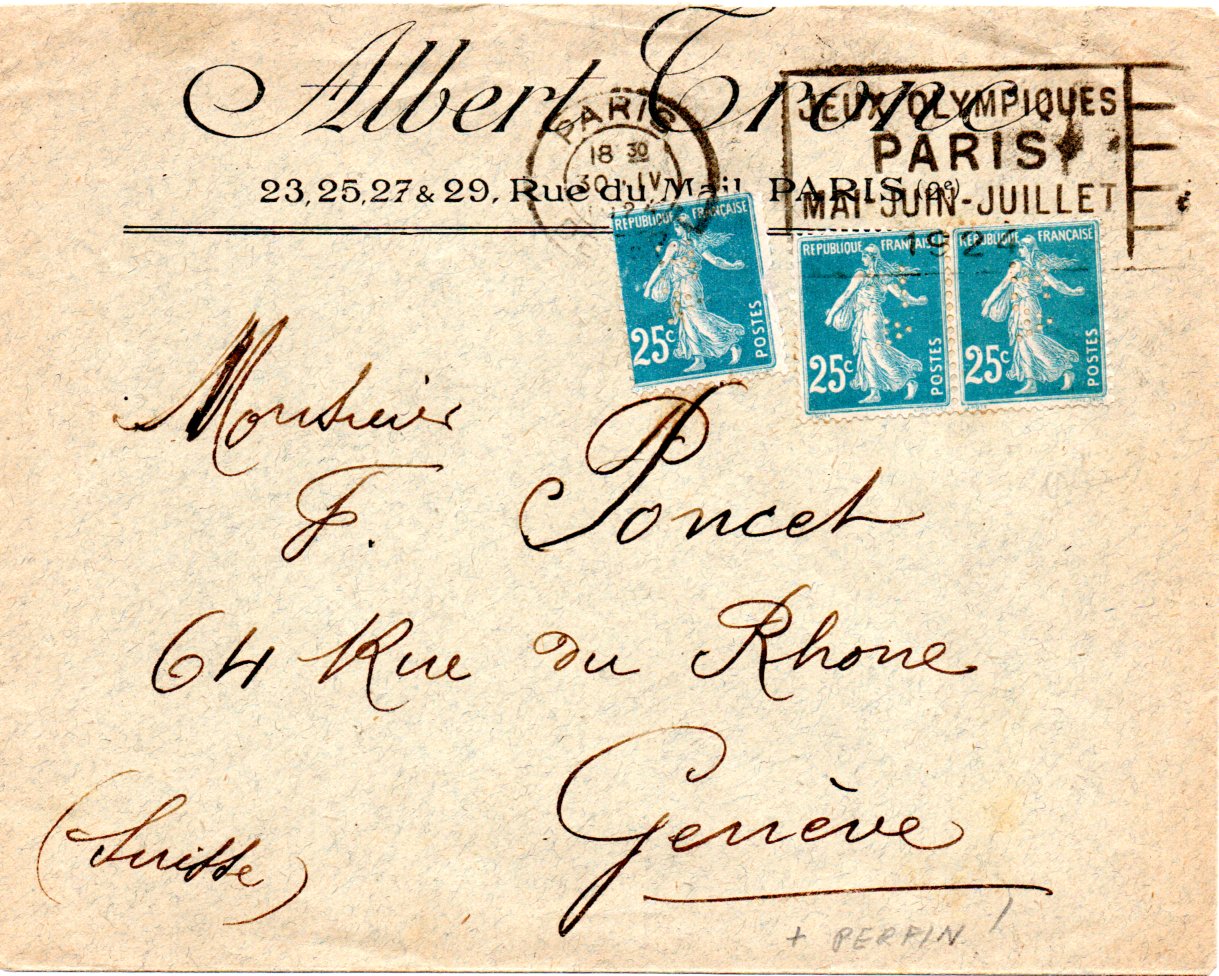 Albert Trone
23, 25, 27 & 29, Rue du Mail, PARIS (2e)
PARIS
18 30
30 IV
JEUX OLYMPIQUES
PARIS
MAI JUIN-JUILLET
1924
REPUBLIQUE FRANÇAISE
25c
POSTES
REPUBLIQUE FRANÇAISE
25c
POSTES
REPUBLIQUE FRANÇAISE
25c
POSTES
Monsieur
F. Poncet
64 Rue du Rhone
Genève
(Suisse)
+ PERFIN